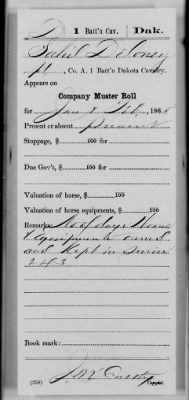 D 1 Batt'n Cav. Dak.
Pvt, Co. A, 1 Batt'n Dakota Cavalry.
Appears on
Company Muster Roll
for Jan & Feb, 186
Present or absent Present
Stoppage, $ 100 for
Due Gov't, $ 100 for
Valuation of horse, $ 100
Valuation of horse equipments, $ 100
Remarks: No of days Horse
& Equipments owned
and kept in Service
243
Book mark:
(858) Copyist.